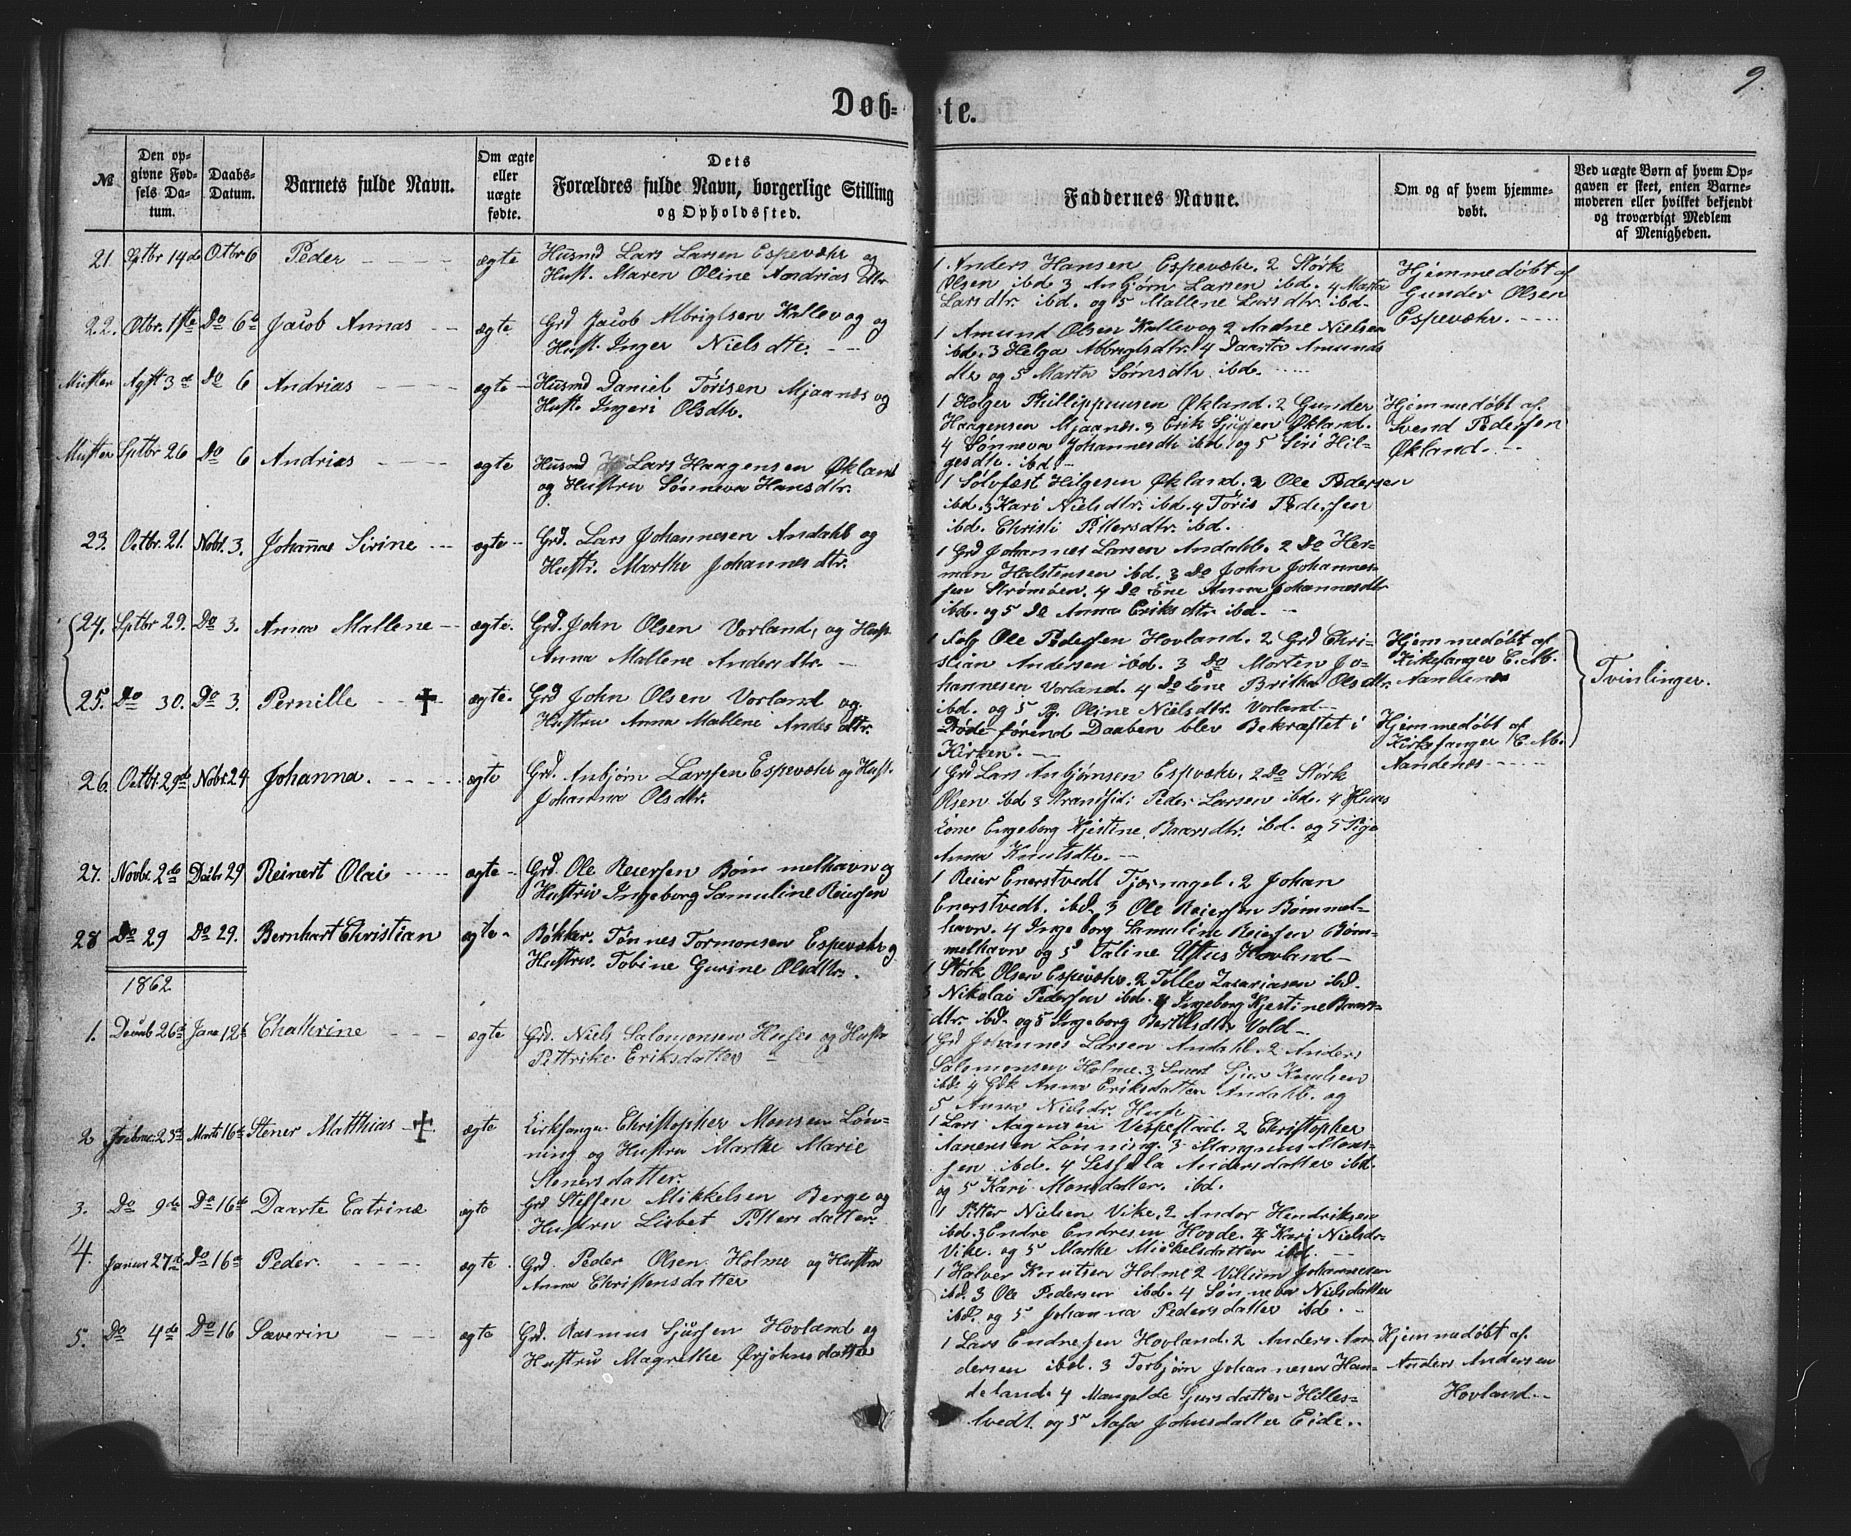 9.
Døbte.
№
Den opgivne Fødsels Datum.
Daabs-Datum.
Barnets fulde Navn.
Om ægte eller uægte fødte.
Dets Forældres fulde Navn, borgerlige Stilling og Opholdssted.
Faddernes Navne.
Om og af hvem hjemmedøbt.
Ved uægte Børn af hvem Opgaven er skeet, enten Barnemoderen eller hvilket bekjendt og troværdigt Medlem af Menigheden.
21. Sptbr 14de Otbr 6 Peder ægte
Husmd Lars Larsen Espevæhr og
Hust. Maren Oline Andrias Dtr
1 Anders Hansen Espevæhr. 2 Størk
Olsen ibd 3 Anbjørn Larsen ibd. 4 Marta
Larsdtr. ibd. og 5 Mallene Larsdtr. ibd.
Hjemmedøbt af
Gunder Olsen
Espevæhr.
22. Otbr. 1ste Do 6 Jacob Annas ægte
Grd Jacob Albrigtsen Kallevog og
Hust. Inger Nielsdtr.
1 Amund Olsen Kallevog 2 Aadne Nielsen
ibd. 3 Helga Albrigtsdtr. 4 Daarta Amunds
dtr og 5 Marta Sørnsdtr ibd.
Muster Agst 3 Do 6 Andrias ægte
Husmd Daniel Tørisen Mjaanæs og
Hust. Ingeri Olsdtr.
1 Holger Phillippunsen Økland. 2 Gunder
Haagensen Mjaanæs. 3 Erik Sjursen Økland.
4 Sønneva Johannesdtr ibd. og 5 Siri Hil-
gesdtr. ibd.
Hjemmedøbt af
Svend Pedersen
Økland.
Muster Sptbr 26 Do 6 Andrias ægte
Husmd Lars Haagensen Økland
og Hustru Sønneva Hansdtr.
1 Sølvfæst Hilgesen Økland. 2 Ole Pedersen
ibd. 3 Kari Nielsdtr. ibd. 4 Töris Pedersen
ibd. Christi Pittersdtr. ibd.
23. Octbr. 21. Nobr. 3. Johannas Sirine ægte
Grd. Lars Johannesen Andahl og
Hustr. Marthe Johannesdtr.
1 Grd Johannes Larsen Andahl. 2 Do Her-
man Halstensen ibd. 3 Do John Johannes-
sen Strømøen. 4 Do Ene Anna Johannesdtr
ibd. og 5 Do Anna Eriksdtr ibd.
24. Sptbr 29. Do 3. Anna Mallene ægte.
Grd. John Olsen Vorland, og Hust.
Anna Mallene Andersdtr.
1 Selg Ole Pedersen Hovland. 2 Grd Chri-
stian Andersen ibd. 3 Do Morten Jo-
hannesen Vorland. 4 Do Ene Britha Olsdtr.
ibd. og 5 Pg. Oline Nielsdtr. Vorland
Hjemmedøbt af
Kirkesanger C. M.
Nandenæs
Tvinlinger.
25. Do 30. Do 3. Pernille ✝ ægte.
Grd John Olsen Vorland og
Hustru Anna Mallene Andersdtr.
Døde førind Daaben blev Bekræftet i
Kirken.
Hjemmedøbt af
Kirkesanger C. M.
Nandenæs
26. Octbr. 29de Nobr 24 Johanna. ægte
Grd. Anbjørn Larssen Espevæhr og Hust.
Johanna Olsdtr.
1 Grd Lars Anbjørnsen Espevæhr. 2 Do Størk
Olsen ibd 3 Strandsid: Peder Larsen ibd. 4 Huus
Kone Engeborg Kjestine Baarsdtr. ibd. og 5 Pige
Anna Knutsdtr.
27. Novbr. 2de Dcibr 29 Reinert Olai ægte
Grd. Ole Reiersen Bømmelhavn og
Hustru Ingeborg Samuline Reiersen
1 Reier Enerstvedt Tjærnagel. 2 Johan
Enerstvedt. ibd. 3 Ole Reiersen Bømmel-
havn. 4 Ingeborg Samuline Reiersen Bøm-
melhavn og 5 Taline Ustus Hovland
28 Do 29 Do 29. Bernhart Christian ægte
Bøkker. Tønnes Tormonsen Espevæhr og
Hustru. Tobine Gurine Olsdtr.
1 Størk Olsen Espevæhr. 2 Tollev Zacariasen ibd.
3 Nikolai Pedersen ibd. 4 Ingeborg Kjestine Baars-
dtr. ibd. og 5 Ingeborg Bertelsdtr Vold
1862
1. Decmb 26 Janu 12 Chathrine ægte
Grd. Niels Salomonsen Husee og Hustr
Pittrike Eriksdatter
1 Grd Johannes Larsen Andahl. 2 Anders
Salomonsen Holme. 3 Smed Sjur Knutsen
ibd. 4 Gdk Anna Eriksdatter Andahl. og
5 Anna Nielsdr. Huse
2 Febru: 23 Marts 16 Stener Matthias ✝ ægte
Kirksanger Christopher Monsen Løn-
ning og Hustru Marthe Marie
Stenersdatter.
1 Lars Aagensen Vespestad. 2 Christopher
Aanensen Lønning. 3 Mangnus Mons-
sen ibd. 4 Sessela Andersdatter ibd.
og 5 Kari Monsdatter. ibd.
3. Do 9de Do 16 Daarte Catrine ægte
Grd Steffen Mikkelsen Berge og
Hustru Lisbet Pittersdatter.
1 Pitter Nielsen Vike. 2 Andor Hendriksen
ibd. 3 Endre Endresen Hovde. 4 Kari Nielsdr.
Vike. og 5 Marthe Mickelsdatter ibd.
4. Januar 27 Do 16 Peder. ægte.
Grd Peder Olsen Holme og Hustru
Anna Christensdatter
1 Halver Knutsen Holme 2 Villum Johannesen
ibd. 3 Ole Pedersen ibd. 4 Sønneva Nielsdatter
ibd. og 5 Johanna Pedersdatter ibd.
5. Do 4de Do 16 Saverin ægte
Grd. Rasmus Sjursen Hovland og
Hustru Magrethe Ørjohnsdatter
1 Lars Endresen Hovland. 2 Anders An-
dersen ibd. 3 Torbjørn Johannesen Han-
deland. 4 Mangelde Sjursdatter Hilles-
tvedt. og 5 Aasa Johnsdatter Eide.
Hjemmedøbt af.
Anders Andersen
Hovland